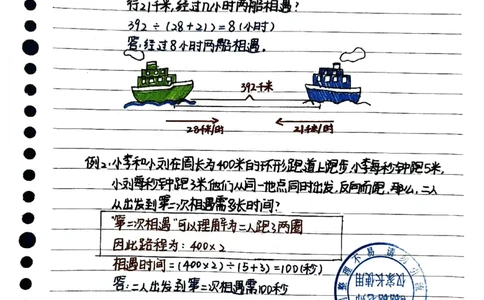 行21千米,经过几小时两船相遇?
392÷(28+21)=8(小时)
答:经过8小时两船相遇。
392千米
28千米/时
21千米/时
例2:小李和小刘在周长为400米的环形跑道上跑步,小李每秒钟跑5米,
小刘每秒钟跑3米,他们从同一地点同时出发,反向而跑,那么,二人
从出发到第二次相遇需多长时间?
"第二次相遇"可以理解为二人跑了两圈
因此路程为:400×2
相遇时间=(400×2)÷(5+3)=100(秒)
答:二人出发到第二次相遇需100秒
整理不易
仅家长使用